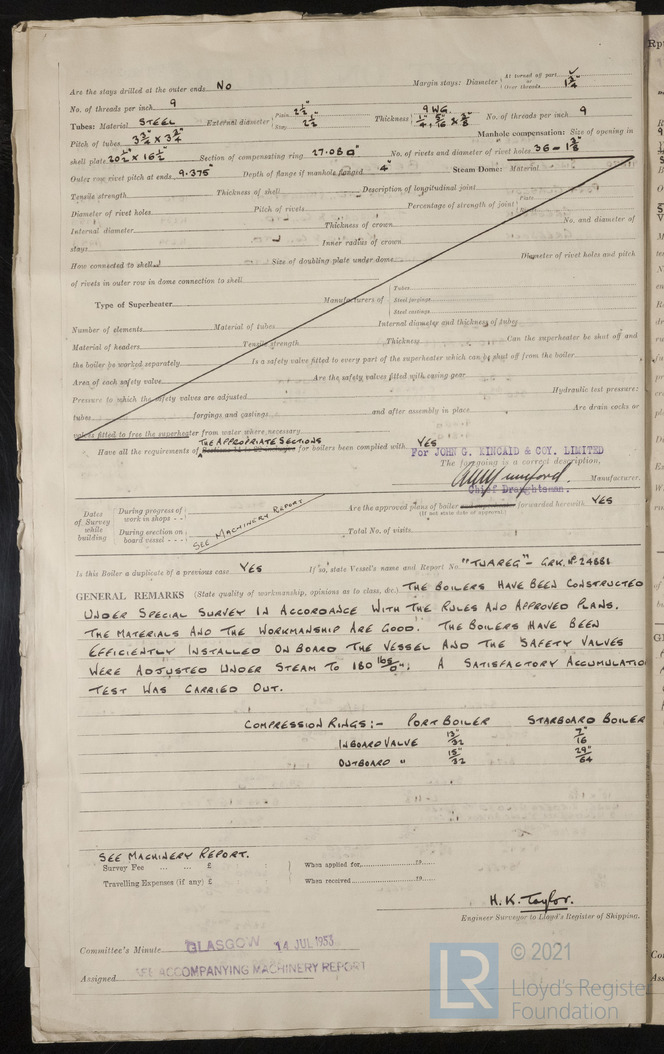 Are the stays drilled at the outer ends No Margin stays: Diameter { At turned off part, or Over threads 1 3/4"
No. of threads per inch 9
Tubes: Material STEEL External diameter { Plain 2 1/2" Stay 2 1/2" Thickness { 9 W.G. 1/4", 5/16" & 3/8" No. of threads per inch 9
Pitch of tubes 3 3/4" x 3 3/4" Manhole compensation: Size of opening in
shell plate 20 1/2" x 16 1/2" Section of compensating ring 27.08 □" No. of rivets and diameter of rivet holes 36 - 1 3/8"
Outer row rivet pitch at ends 9.375" Depth of flange if manhole flanged 4" Steam Dome: Material
Tensile strength Thickness of shell Description of longitudinal joint
Diameter of rivet holes Pitch of rivets Percentage of strength of joint { Plate
Internal diameter Thickness of crown No. and diameter of
stays Inner radius of crown
How connected to shell Size of doubling plate under dome Diameter of rivet holes and pitch
of rivets in outer row in dome connection to shell
Type of Superheater Manufacturers of { Tubes Steel forgings Steel castings
Number of elements Material of tubes Internal diameter and thickness of tubes
Material of headers Tensile strength Thickness Can the superheater be shut off and
the boiler be worked separately Is a safety valve fitted to every part of the superheater which can be shut off from the boiler
Area of each safety valve Are the safety valves fitted with easing gear
Pressure to which the safety valves are adjusted Hydraulic test pressure:
tubes forgings and castings and after assembly in place Are drain cocks or
valves fitted to free the superheater from water where necessary
THE APPROPRIATE SECTIONS
Have all the requirements of for boilers been complied with YES
For JOHN G. KINCAID & COY. LIMITED
The foregoing is a correct description,
Manufacturer.
Chief Draughtsman.
Dates of Survey while building { During progress of work in shops - - During erection on board vessel - - - SEE MACHINERY REPORT
Are the approved plans of boiler forwarded herewith YES
(If not state date of approval.)
Total No. of visits
Is this Boiler a duplicate of a previous case YES If so, state Vessel's name and Report No. "TUAREG" - GRK. No. 24881
GENERAL REMARKS (State quality of workmanship, opinions as to class, &c.) THE BOILERS HAVE BEEN CONSTRUCTED
UNDER SPECIAL SURVEY IN ACCORDANCE WITH THE RULES AND APPROVED PLANS.
THE MATERIALS AND THE WORKMANSHIP ARE GOOD. THE BOILERS HAVE BEEN
EFFICIENTLY INSTALLED ON BOARD THE VESSEL AND THE SAFETY VALVES
WERE ADJUSTED UNDER STEAM TO 180 lbs/□"; A SATISFACTORY ACCUMULATIO
TEST WAS CARRIED OUT.
COMPRESSION RINGS:- PORT BOILER STARBOARD BOILER
INBOARD VALVE 13/32" 7/16"
OUTBOARD " 15/32" 29/64"
SEE MACHINERY REPORT.
Survey Fee ... ... £ : : } When applied for 19
Travelling Expenses (if any) £ : : } When received 19
H. K. Taylor.
Engineer Surveyor to Lloyd's Register of Shipping.
Committee's Minute GLASGOW 14 JUL 1953
Assigned SEE ACCOMPANYING MACHINERY REPORT
LR © 2021
Lloyd's Register
Foundation